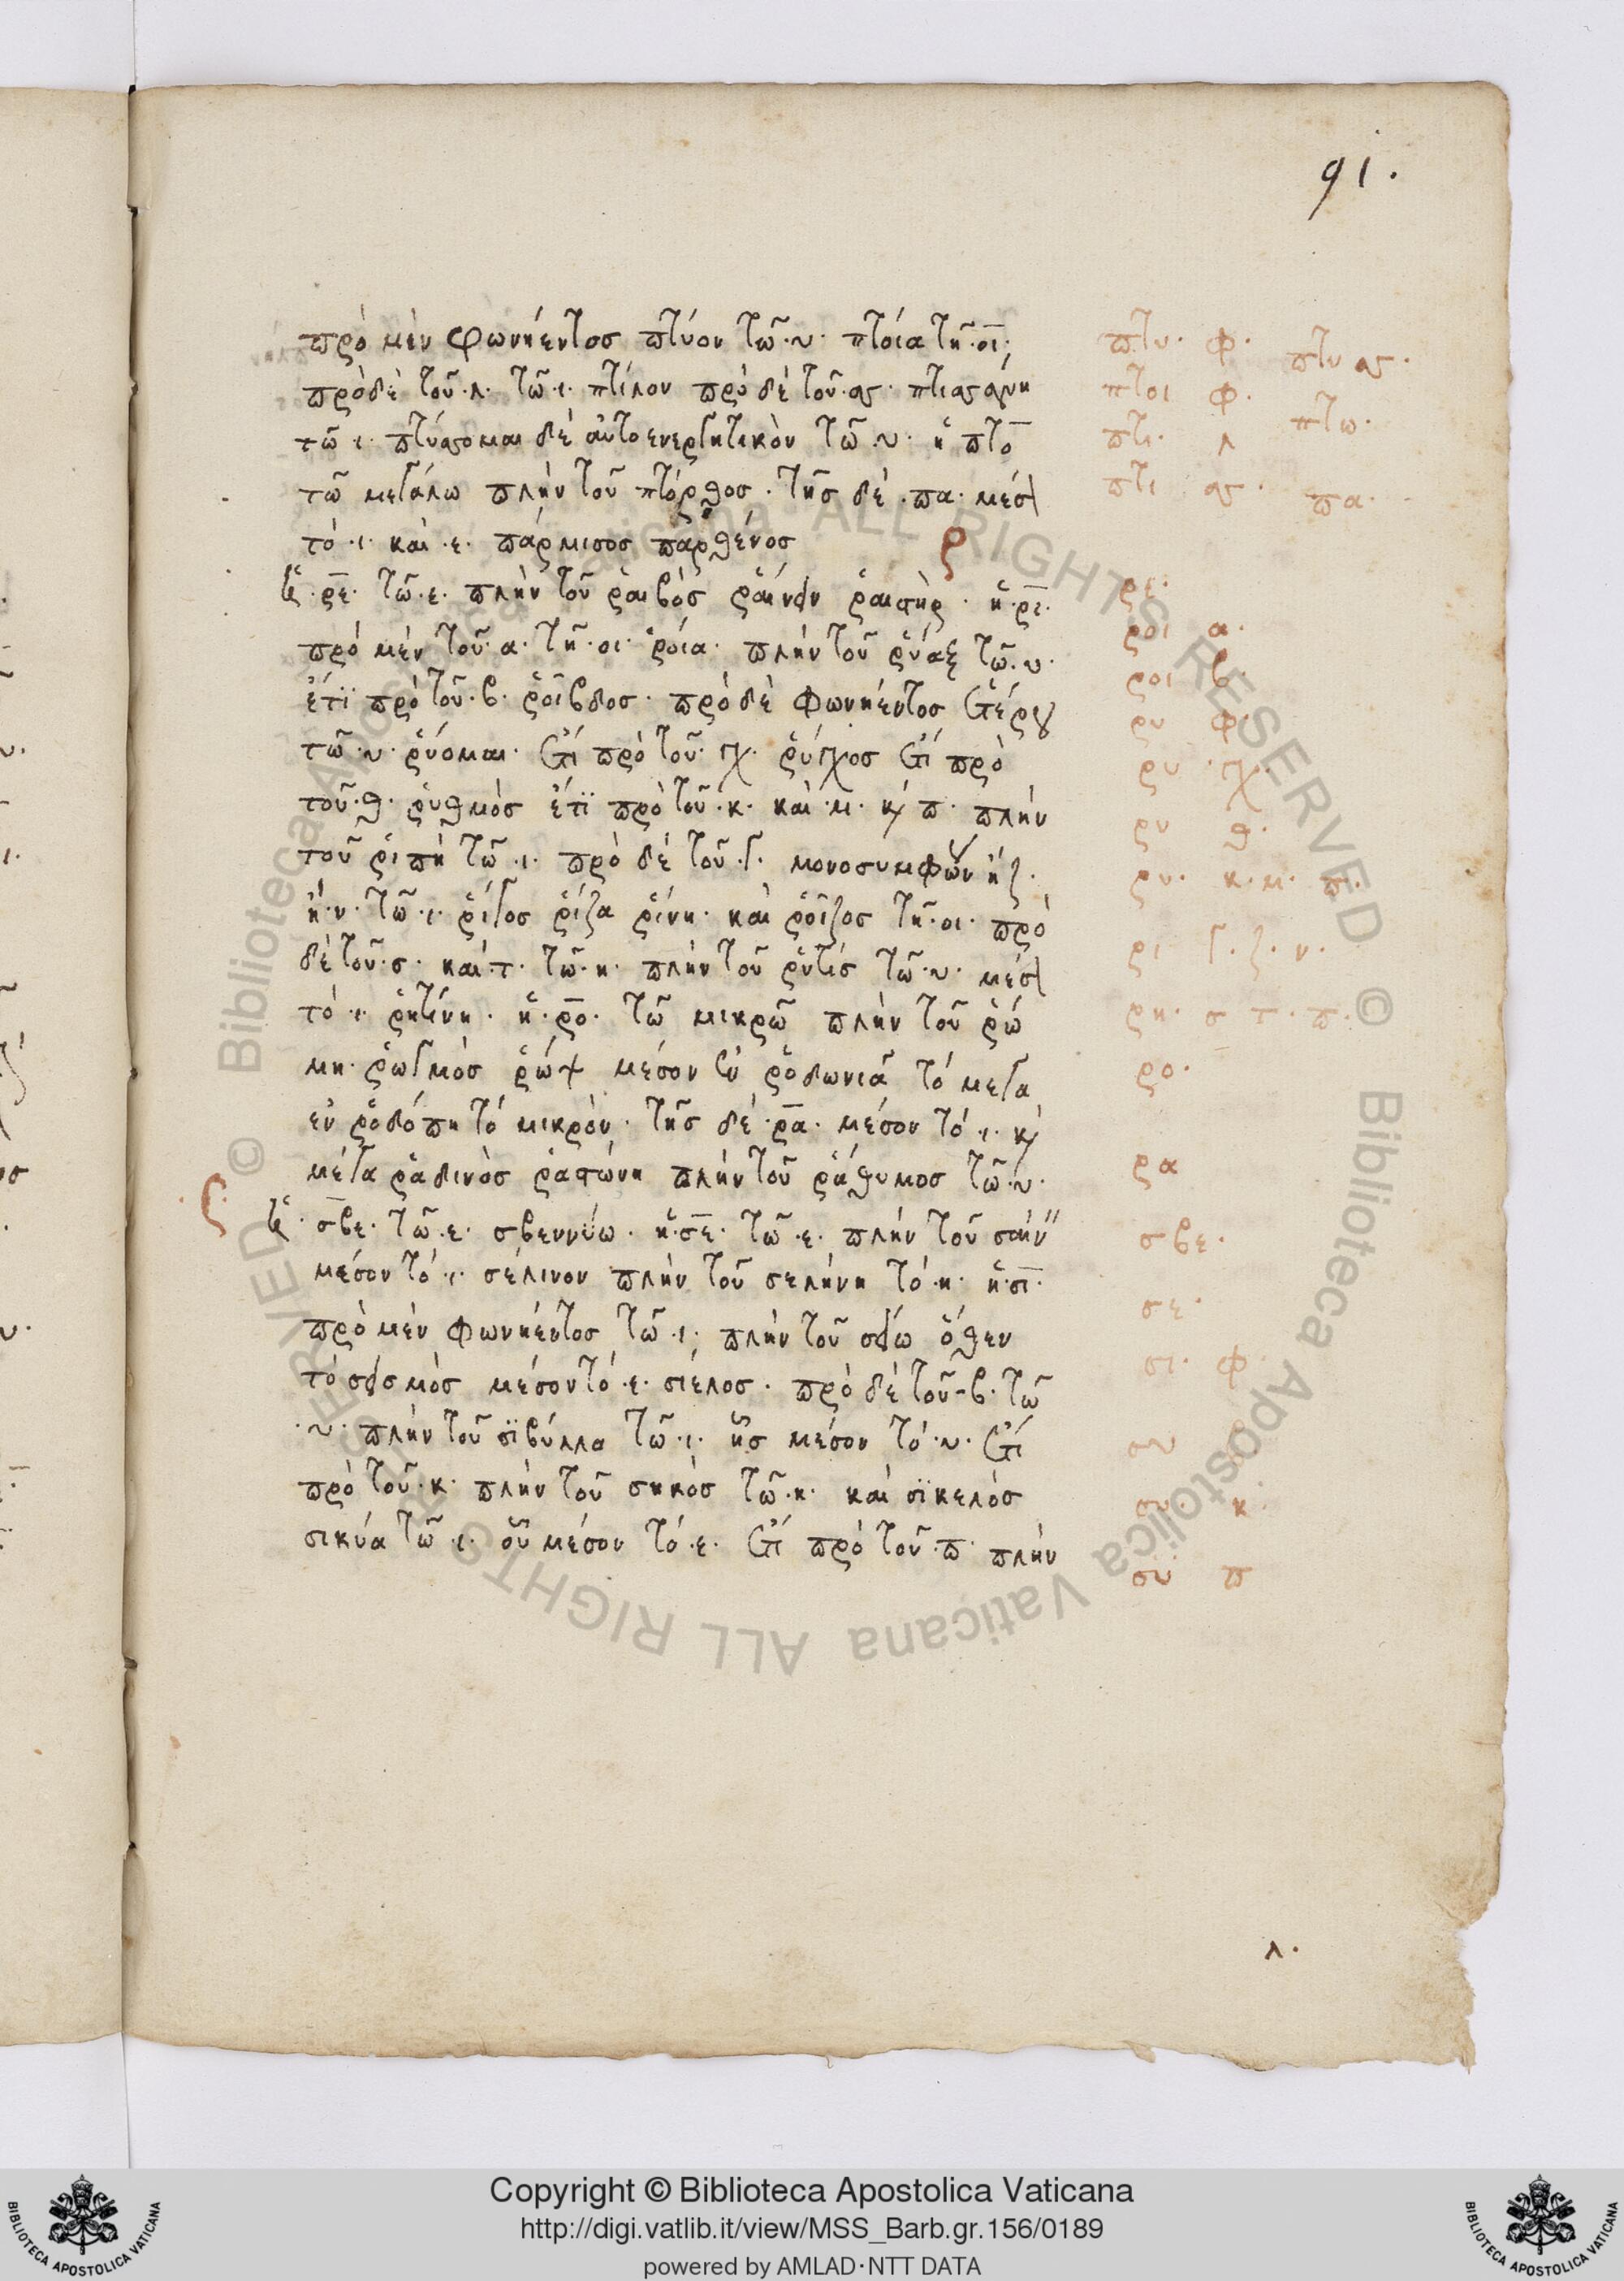 91.
πρὸ μὲν φωνήεντοσ πτύον τῶ·υ· πτοία τῆ·οι·
πρὸ δὲ τοῦ·λ· τῶ·ι· πτίλον πρὸ δὲ τοῦ·σσ· πτισσάνη
τῶ ι· πτύσσομαι δὲ αὐτοενεργητικὸν τῶ·υ· ἡ πτο
τῶ μεγάλω πλὴν τοῦ πτόρθοσ· τῆσ δὲ·πα· μέσ
τὸ·ι· καὶ·ε· πάρμισοσ παρθένοσ
ρ
ἡ·ρε· τῶ·ε· πλὴν τοῦ ῥαιβὸσ ῥαίνειν ῥαιστὴρ· ἡ·ρι·
πρὸ μὲν τοῦ·α· τῆ·οι· ῥοία· πλὴν τοῦ ῥύαξ τῶ·υ·
ἔτι πρὸ τοῦ·β· ῥοῖβδοσ· πρὸ δὲ φωνήεντοσ ἑτέρου
τῶ·υ· ῥύομαι· ἔτι πρὸ τοῦ·γχ· ῥύγχοσ ἔτι πρὸ
τοῦ·θ· ῥυθμὸσ ἔτι πρὸ τοῦ·κ· καὶ·μ· κ π· πλὴν
τοῦ ῥιπὴ τῶ·ι· πρὸ δὲ τοῦ·γ· μονοσυμφών ἢ ζ·
ἢ·ν· τῶ·ι· ῥίγοσ ῥίζα ῥίνη· καὶ ῥοῖζοσ τῆ·οι· πρὸ
δὲ τοῦ·σ· καὶ·τ· τῶ·η· πλὴν τοῦ ῥυτὶσ τῶ·υ· μέσ
τὸ·ι· ῥητίνη· ἡ·ρο· τῶ μικρῶ πλὴν τοῦ ῥώ
μη· ῥωγμὸσ ῥώψ μέσον ἐν ῥοδωνιᾶ τὸ μεγα
ἐν ῥοδόπη τὸ μικρὸν· τῆσ δὲ·ρα· μέσον τὸ·ι· κ
μέγα ῥαδινὸσ ῥαστώνη πλὴν τοῦ ῥάθυμοσ τῶ·υ·
ἡ·σβε· τῶ·ε· σβεννύω· ἡ·σε· τῶ·ε· πλὴν τοῦ σαίν
μέσον τὸ·ι· σέλινον πλὴν τοῦ σελήνη τὸ·η· ἡ·σι·
πρὸ μὲν φωνήεντοσ τῶ·ι· πλὴν τοῦ σείω ὅθεν
τὸ σεισμὸσ μέσον τὸ·ε· σίελοσ· πρὸ δὲ τοῦ·β· τῶ
·υ· πλὴν τοῦ σϊβύλλα τῶ·ι· ἧσ μέσον τὸ·υ· ἔτι
πρὸ τοῦ·κ· πλὴν τοῦ σηκὸσ τῶ·η· καὶ σϊκελὸσ
σικύα τῶ·ι· οὗ μέσον τὸ·ε· ἔτι πρὸ τοῦ·π· πλὴν
πτυ· φ· πτυ σσ·
πτοι φ·
πτω·
πτι· λ
πτι σσ· πα·
ρε·
ροι α·
ροι β·
ρυ φ·
ρυ·γχ·
ρυ θ·
ρυ· κ·μ· π·
ρι γ·ζ·ν·
ρη· σ τ·π·
ρο·
ρα
σβε·
σε·
σι· φ·
συ β
συ· κ·
συ π
λ·
Copyright © Biblioteca Apostolica Vaticana
http://digi.vatlib.it/view/MSS_Barb.gr.156/0189
powered by AMLAD·NTT DATA
BIBLIOTECA APOSTOLICA VATICANA
BIBLIOTECA APOSTOLICA VATICANA
© Biblioteca Apostolica Vaticana ALL RIGHTS RESERVED © Biblioteca Apostolica Vaticana ALL RIGHTS RESERVED